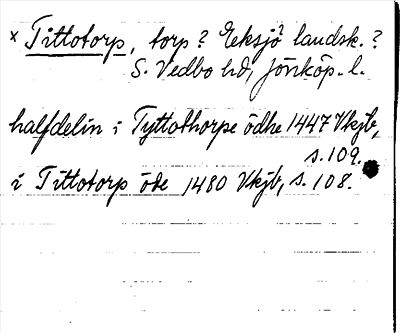 × Tittotorp, torp? Eksjö landsk.?
S. Vedbo hd, Jönköp. l.
halfdelin i Tyttothorpe ödhe 1447 Vkjb,
s. 109.
i Tittotorp öde 1480 Vkjb, s. 108.